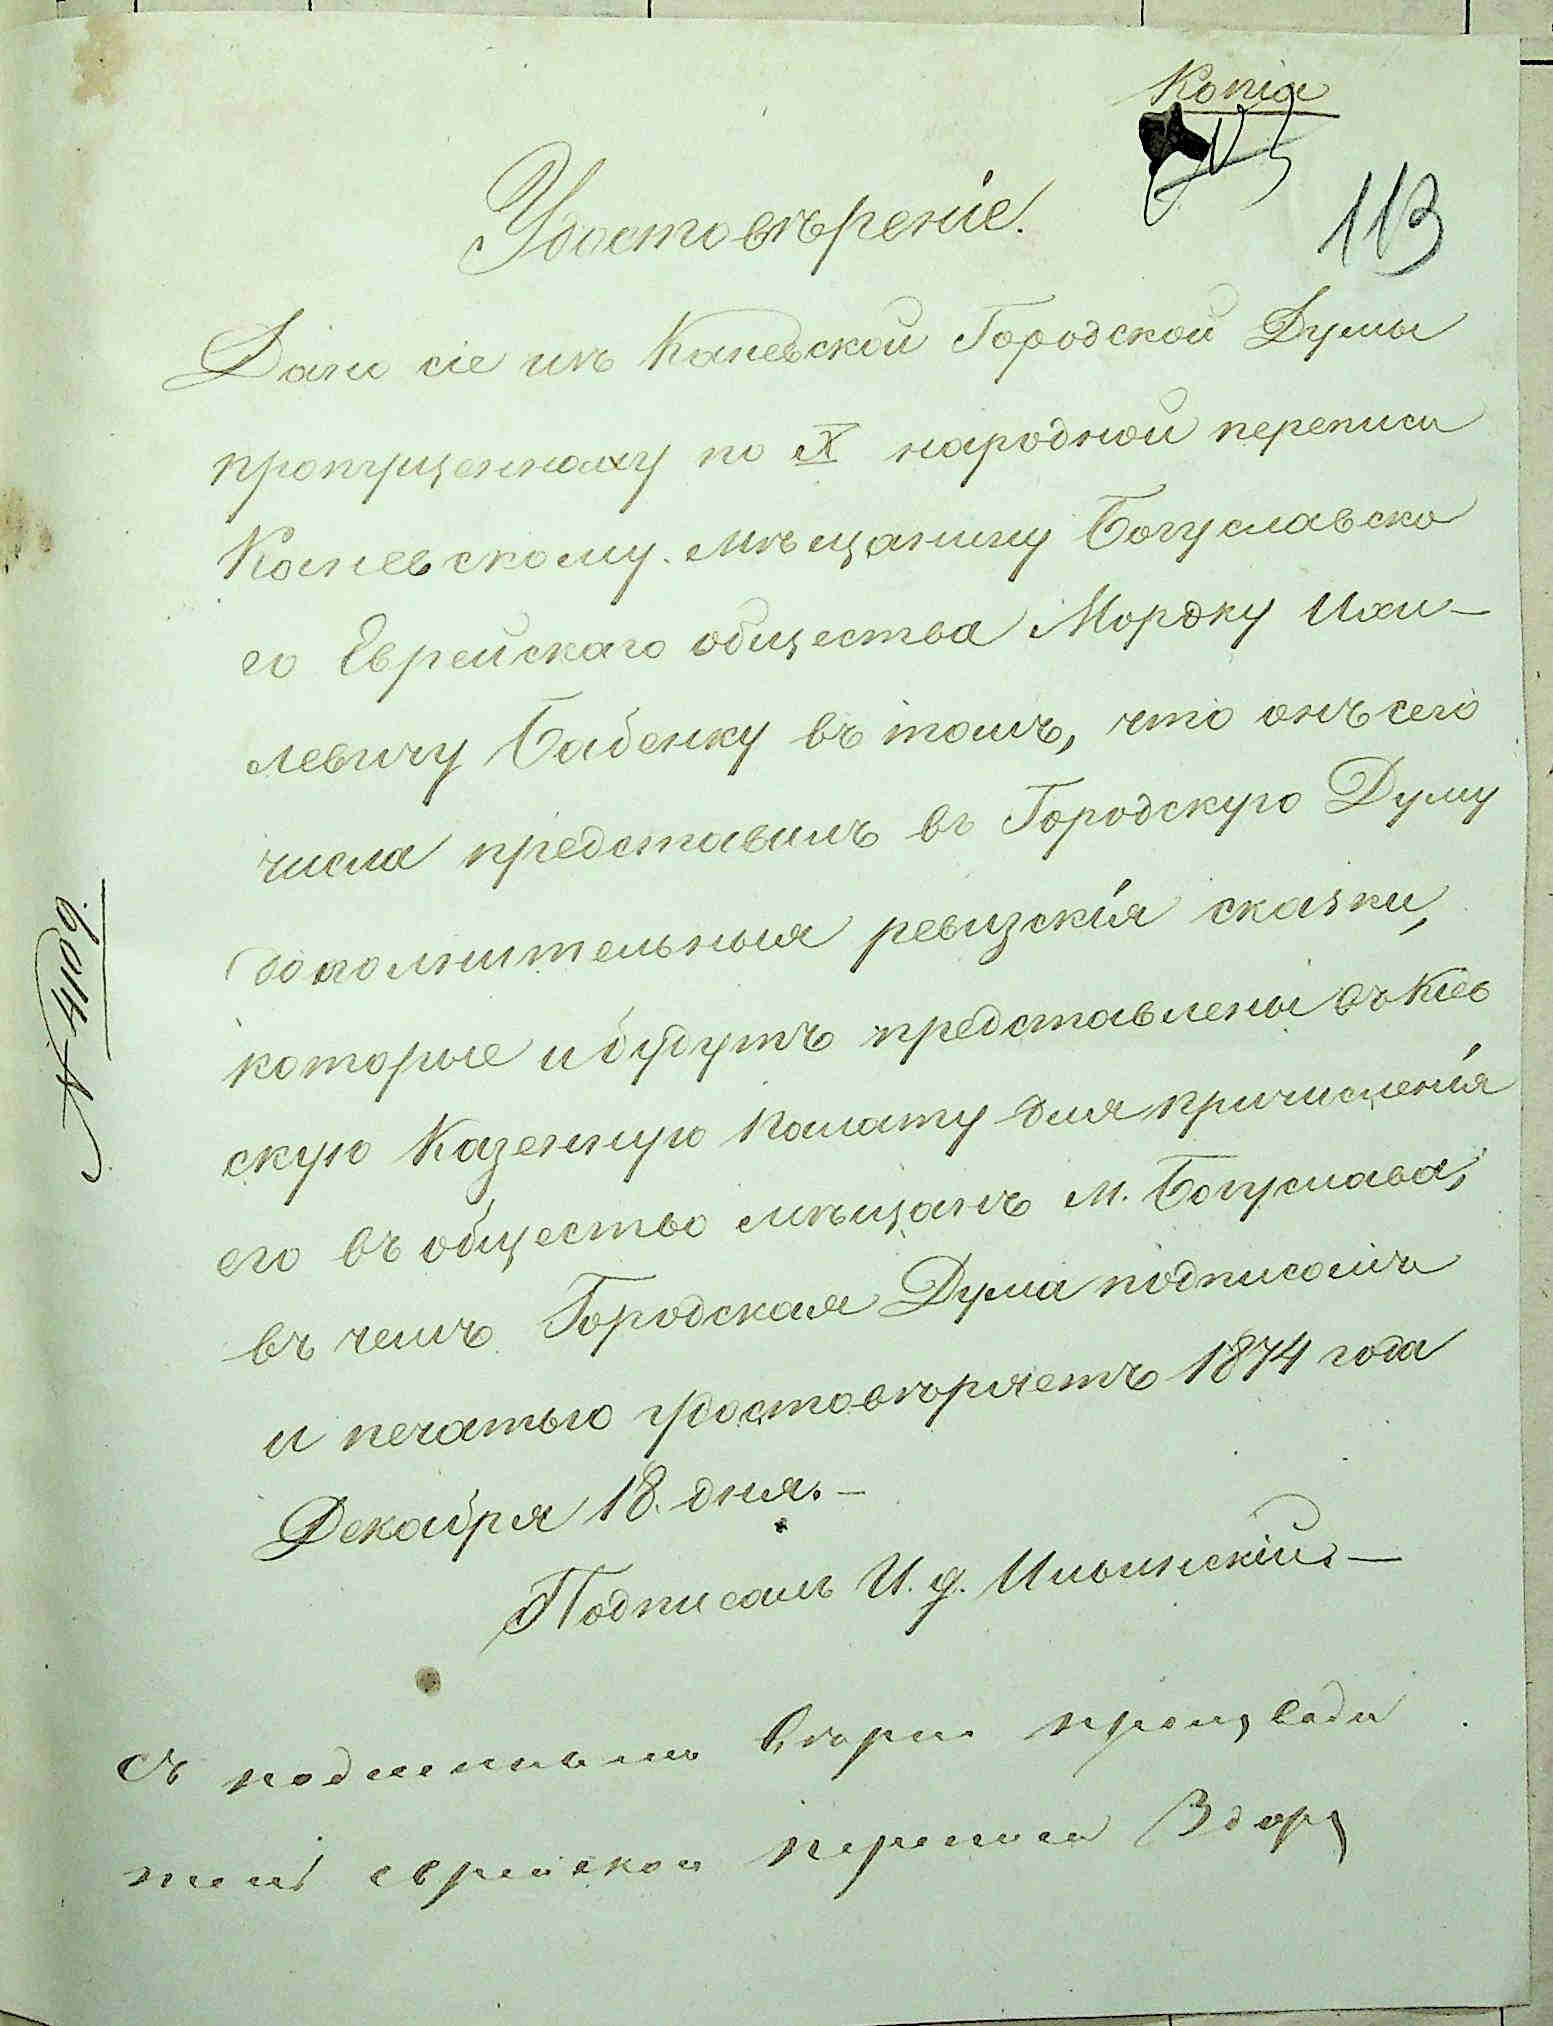 Копія
113
Удостовѣреніе.
Дано сіе изъ Каневской Городской Думы
пропущенному по X народной переписи
Каневскому мѣщанину Богуславска
го Еврейскаго общества Мордку Ихи-
левичу Бабенку въ томъ, что онъ сего
числа представилъ въ Городскую Думу
дополнительныя ревизскія сказки,
которые и будутъ представлены въ Кіев
скую Казенную Палату для причисленія
его въ общество мѣщанъ м. Богуслава,
въ чемъ Городская Дума подписомъ
и печатью удостовѣряетъ 1874 года
Декабря 18 дня.-
Подписалъ И. д. Ильинскій.-
Съ подлиннымъ вѣрно производи
тель еврейской переписи
№ 4109.